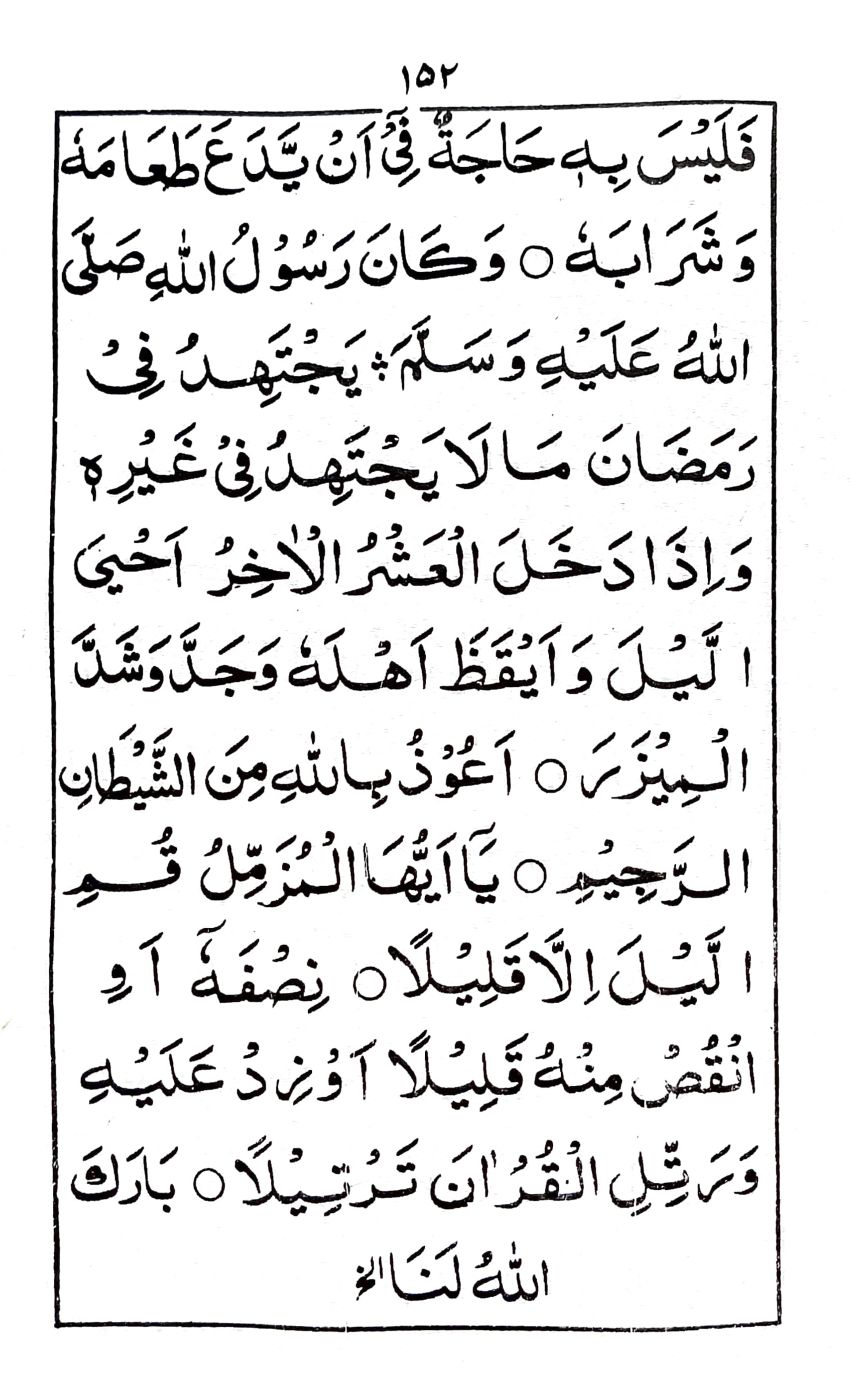 ۱۵۲
فَلَیْسَ بِهٖ حَاجَةٌ فِیْٓ اَنْ یَّدَعَ طَعَامَهٗ
وَشَرَابَهٗ ○ وَكَانَ رَسُوْلُ اللهِ صَلَّی
اللهُ عَلَیْهِ وَسَلَّمَ؞ یَجْتَهِدُ فِیْ
رَمَضَانَ مَا لَا یَجْتَهِدُ فِیْ غَیْرِهٖ
وَاِذَا دَخَلَ الْعَشْرُ الْاٰخِرُ اَحْییَ
الَّیْلَ وَاَیْقَظَ اَهْلَهٗ وَجَدَّ وَشَدَّ
الْمِیْزَرَ ○ اَعُوْذُ بِاللهِ مِنَ الشَّیْطَانِ
الرَّجِیْمِ ○ یَآ اَیُّهَا الْمُزَمِّلُ قُمِ
الَّیْلَ اِلَّا قَلِیْلًا ○ نِصْفَهٗٓ اَوِ
انْقُصْ مِنْهُ قَلِیْلًا اَوْ زِدْ عَلَیْهِ
وَرَتِّلِ الْقُرْاٰنَ تَرْتِیْلًا ○ بَارَكَ
اللهُ لَنَا الخ